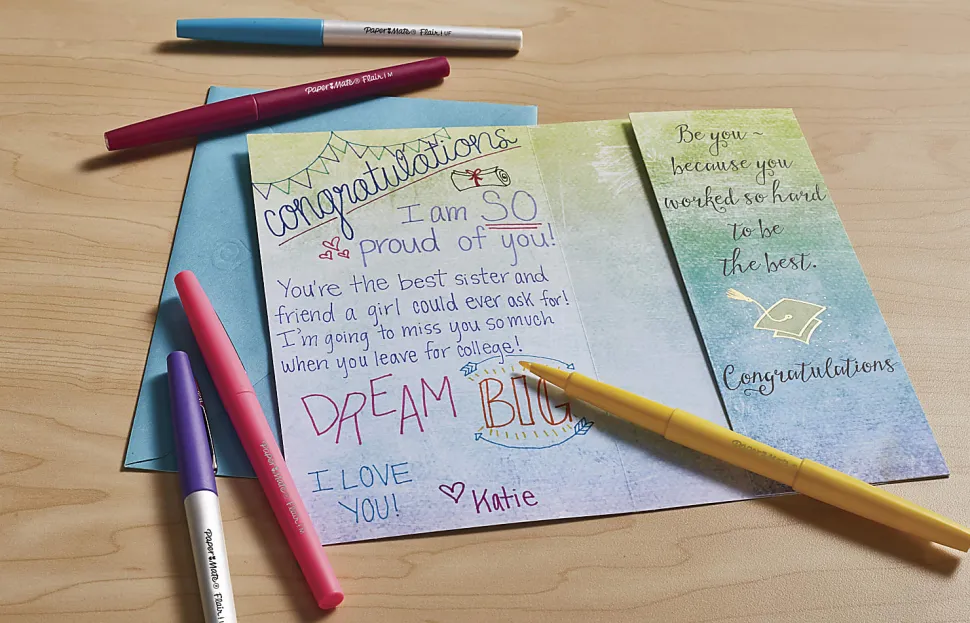 Paper Mate® Flair | UF
Paper Mate® Flair | M
congratulations
I am SO
proud of you!
You're the best sister and
friend a girl could ever ask for!
I'm going to miss you so much
when you leave for college!
DREAM BIG
I LOVE
YOU!
Katie
Be you ~
because you
worked so hard
to be
the best.
Congratulations
Paper Mate® Flair
Paper Mate® Flair